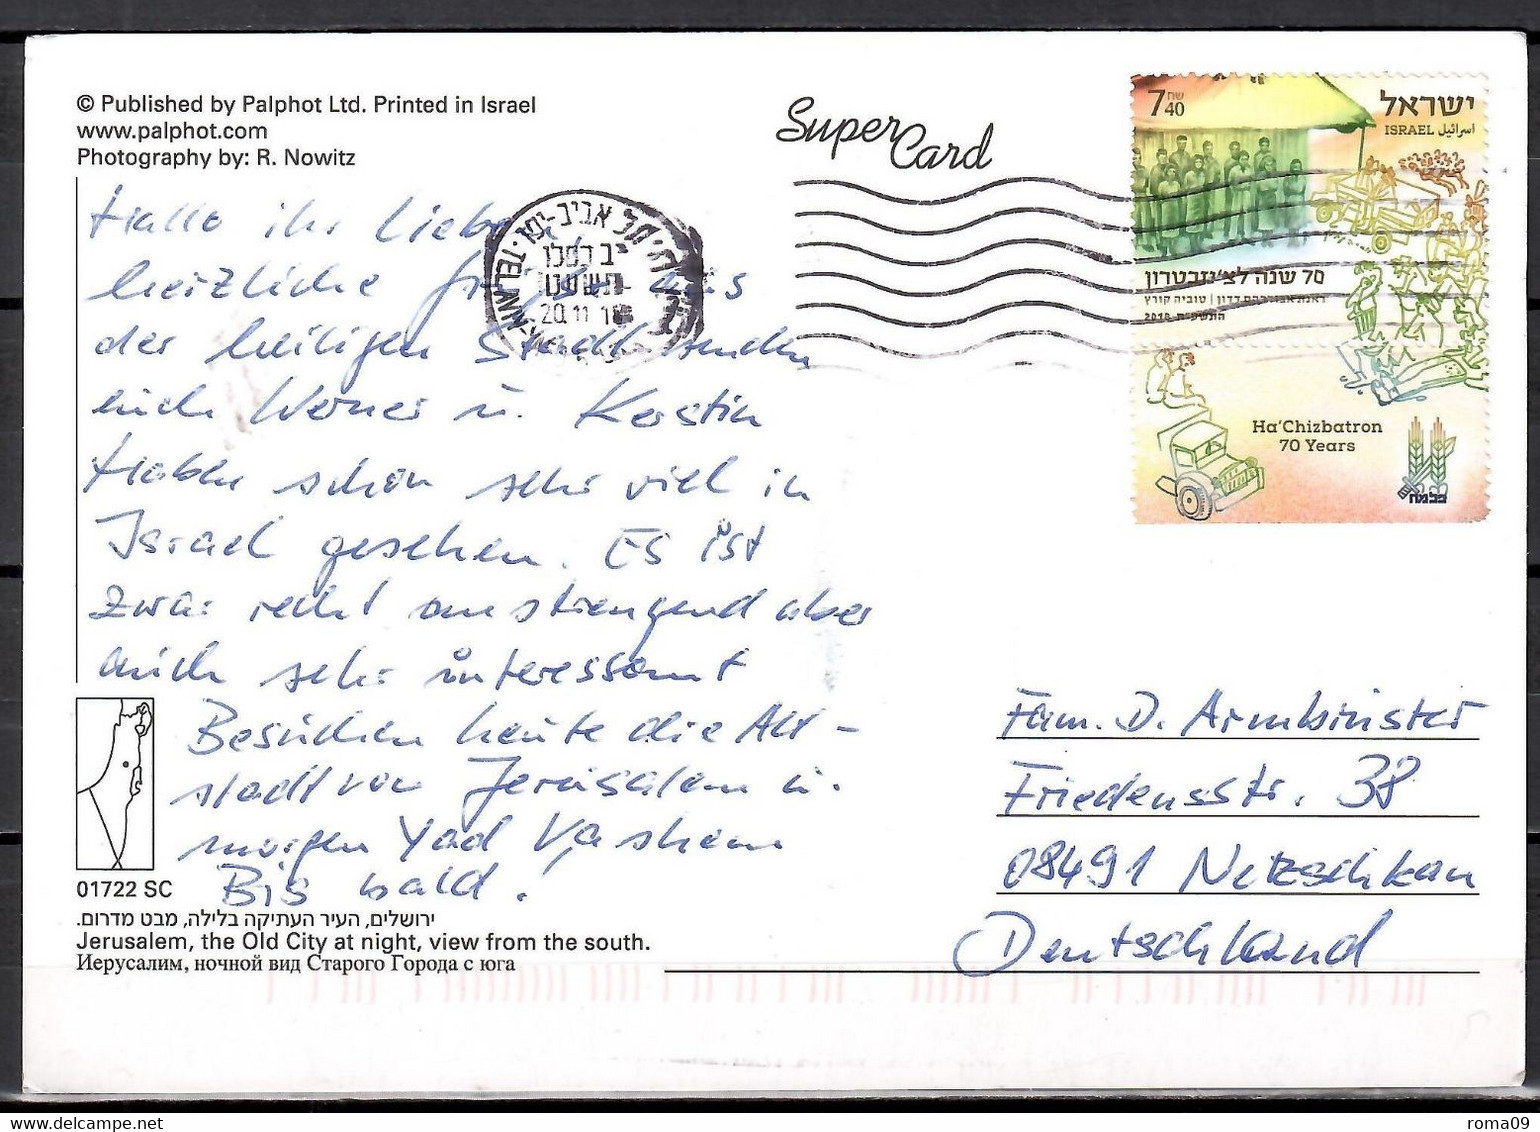 © Published by Palphot Ltd. Printed in Israel
www.palphot.com
Photography by: R. Nowitz
Super Card
7 40 שח
ישראל
ISRAEL اسرائيل
70 שנה לצ'יזבטרון
התשע"ח 2018
Ha'Chizbatron
70 Years
פלמח
תל אביב-יפו
TEL AVIV-
יב כסלו
תשעט
20.11.18
Hallo ihr Lieben,
herzliche Grüße aus
der heiligen Stadt senden
euch Werner u. Kerstin
Haben schon sehr viel in
Israel gesehen. Es ist
zwar recht anstrengend aber
auch sehr interessant
Besuchen heute die Alt-
stadt von Jerusalem u.
morgen Yad Vashem
Bis bald!
Fam. D. Armbrister
Friedensstr. 38
08491 Netzschkau
Deutschland
01722 SC
ירושלים, העיר העתיקה בלילה, מבט מדרום.
Jerusalem, the Old City at night, view from the south.
Иерусалим, ночной вид Старого Города с юга
roma09